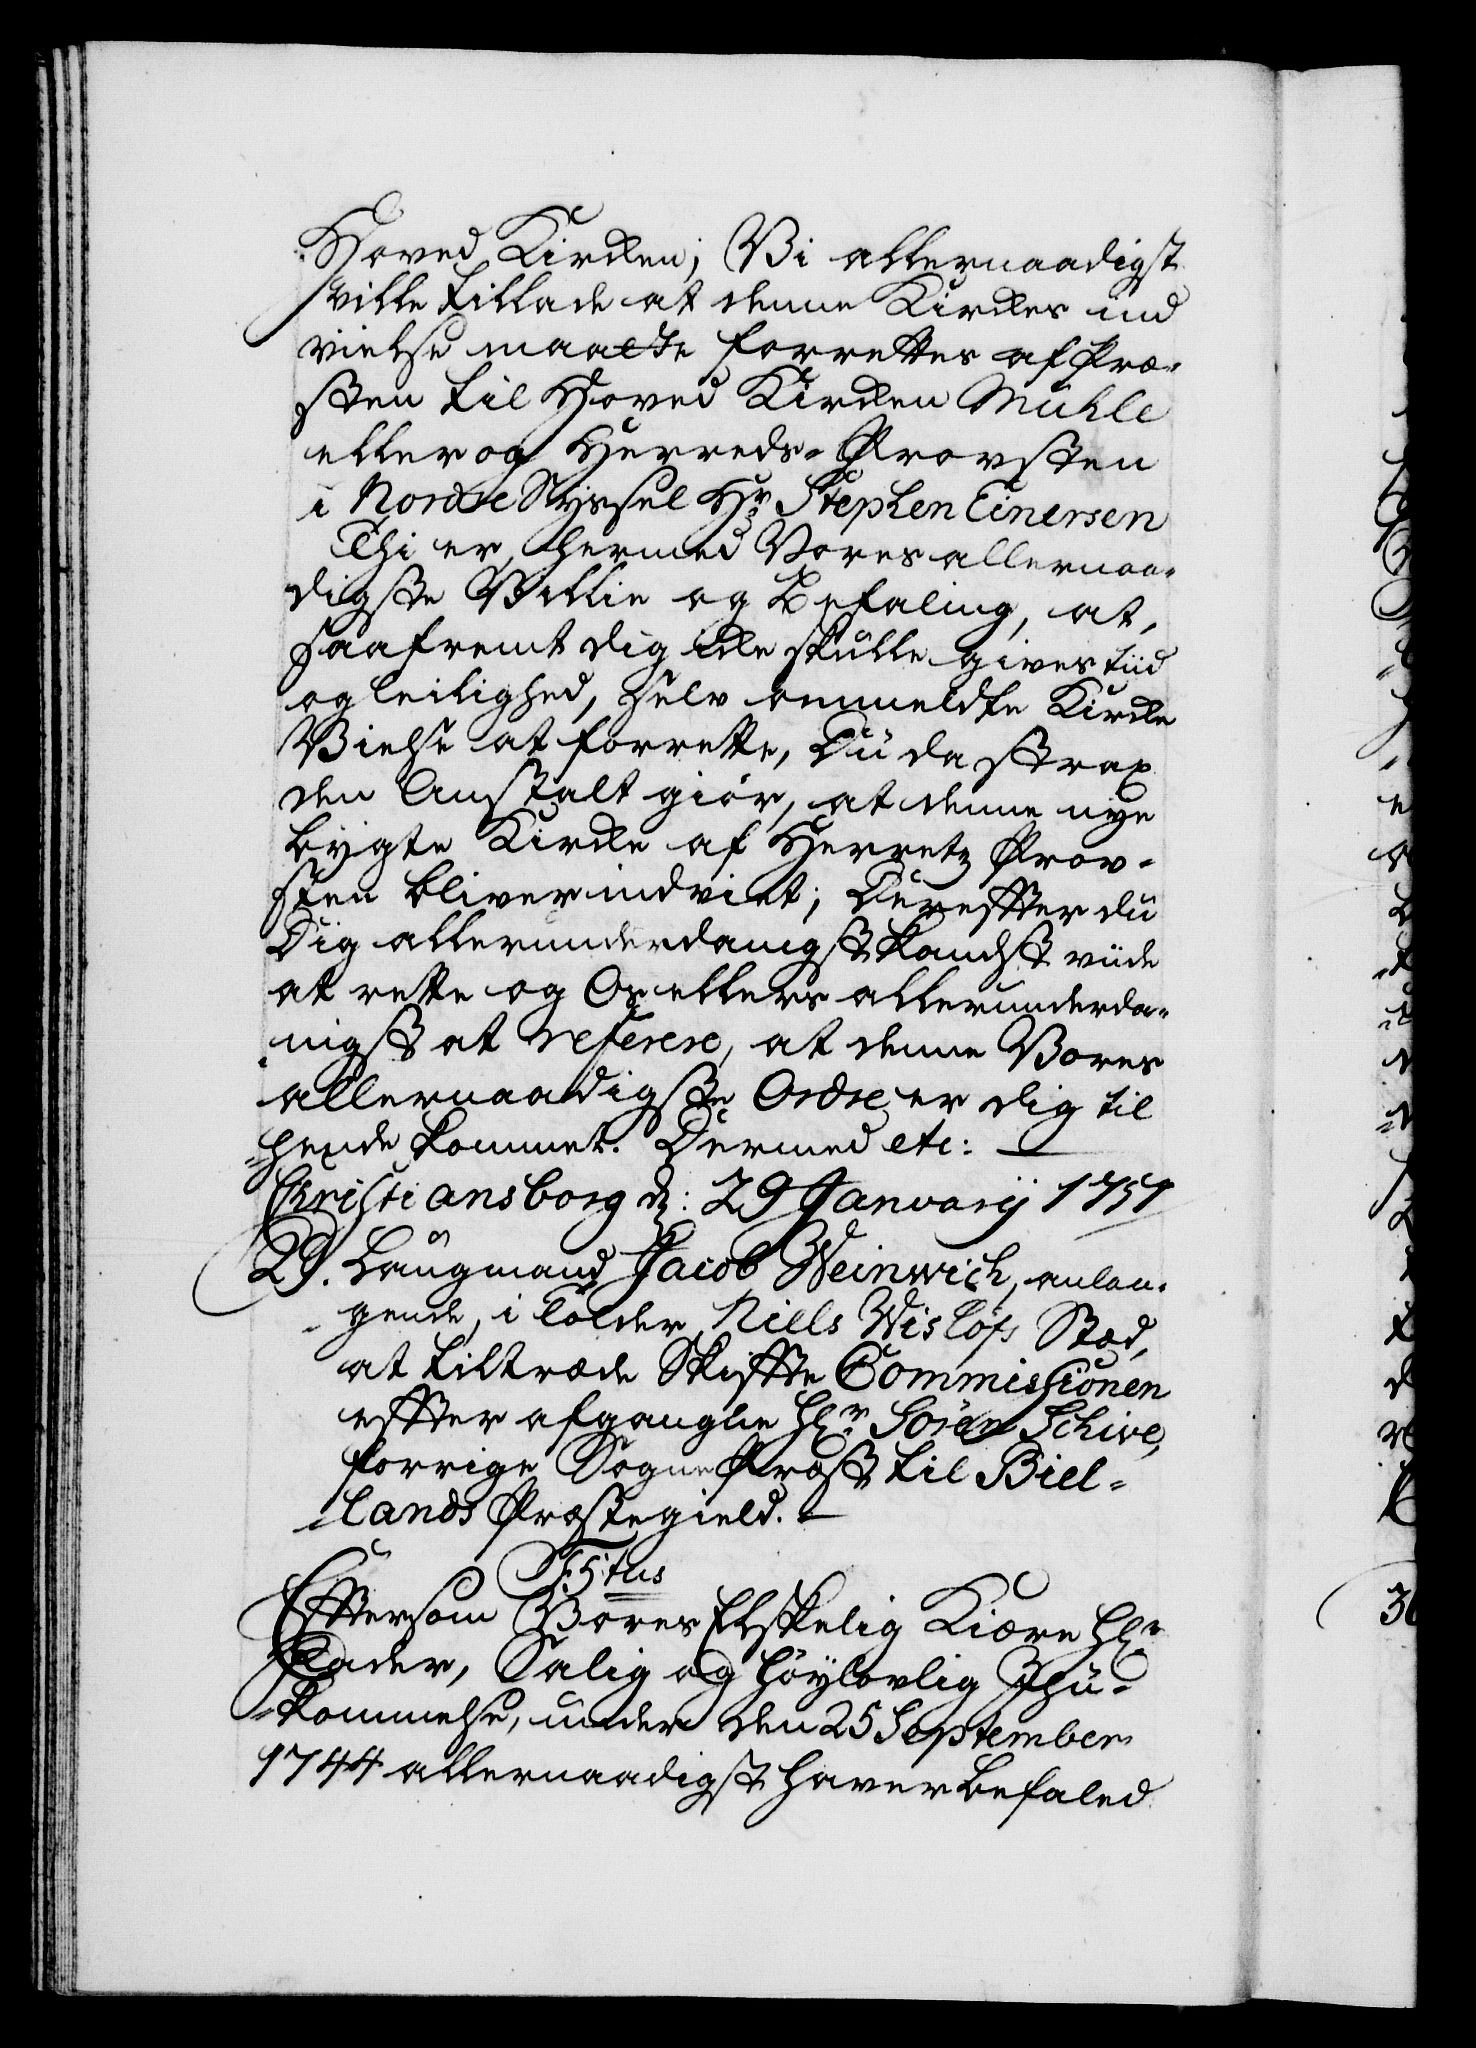 Hoved Kirken; Vi allernaadigst
ville tillade at denne Kirkes ind
vielse maatte forrettes af Præ-
sten til Hoved Kirken Muhle
eller og Herreds-Provsten
i Nordre Syssel Hr Stephen Einersen
Thi er hermed Vores allernaa-
digste Villie og Befaling, at,
saafremt dig icke skulle gives tiid
og leilighed, selv ommeldte Kirke
Vielse at forrette, Du da strax
den Anstalt giør, at denne nye
bygte Kirke af Herretz Prov-
sten bliver indviet; Derefter du
Dig allerunderdanigst kandst viide
at rette og Os ellers allerunderda-
nigst at referere, at denne Vores
allernaadigste Ordre er dig til
hende kommet. Dermed etc:
Christiansborg d: 29 Januarij 1751
29. Laugmand Jacob Weinwich, anlan-
gende, i Tolder Niels Wisløfs Stæd,
at tiltræde Skifte Commissionen
efter afgangne Hr. Søren Schive,
forrige Sogne Præst til Biel-
lands Præstegield.
F: 5tus
Eftersom Vores Elskelig Kiære Hr
Fader, Salig og høylovlig Ihu-
kommelse, under den 25 September
1744 allernaadigst haver befaled
30